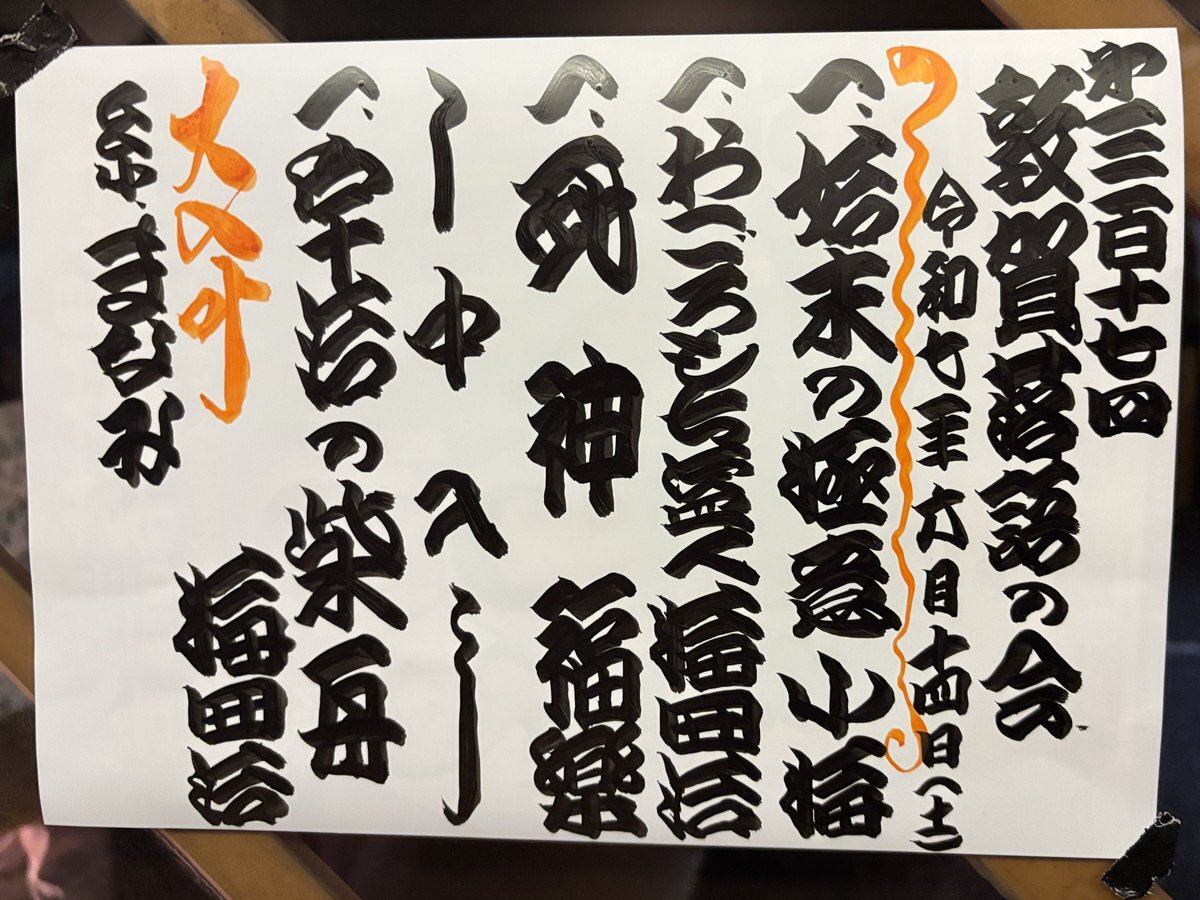 第三百十七回
敦賀落語の会
令和七年六月十四日(土)
〽始末の極意 小梅
〽おごろもち盗人 梅団治
〽死神 福楽
ー中入ー
〽宇治の柴舟
梅団治
大入叶
糸、まなみ